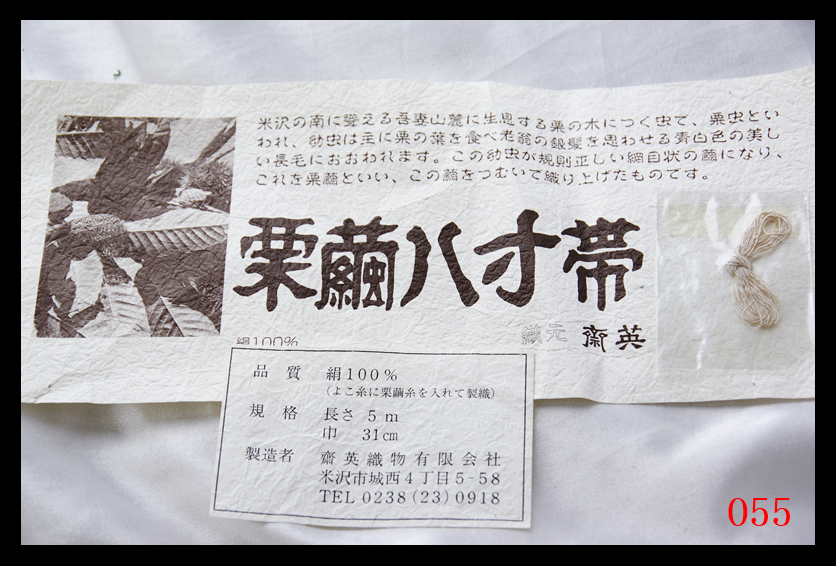 米沢の南に聳える吾妻山麓に生息する栗の木につく虫で、栗虫とい
われ、幼虫は主に栗の葉を食べ老翁の銀髪を思わせる青白色の美し
い長毛におおわれます。この幼虫が規則正しい網目状の繭になり、
これを栗繭といい、この繭をつむいで織り上げたものです。
栗繭八寸帯
織元 齋英
絹100%
品質 絹100%
(よこ糸に栗繭糸を入れて製織)
規格 長さ 5m
巾 31cm
製造者 齋英織物有限会社
米沢市城西4丁目5-58
TEL 0238(23)0918
055